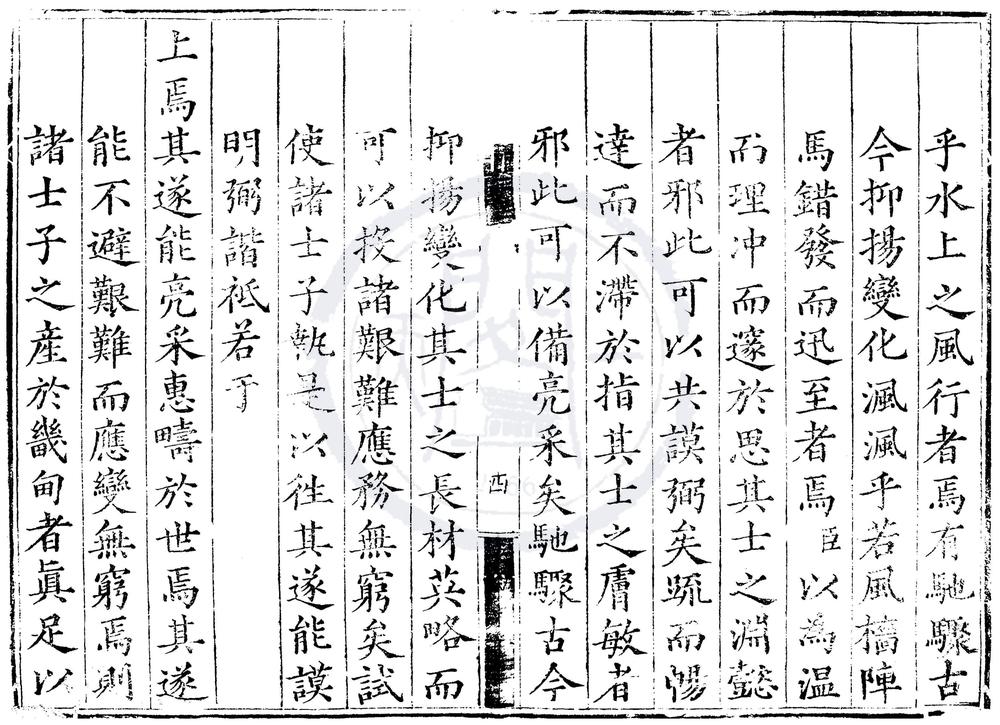 乎水上之風行者焉有馳驟古
今抑揚變化渢渢乎若風檣陣
馬錯發而迅至者焉臣以為温
而理冲而邃於思其士之淵懿
者邪此可以共謨弼矣疏而暢
達而不滯於指其士之膚敏者
邪此可以備亮采矣馳驟古今
四
抑揚變化其士之長材英略而
可以投諸艱難應務無窮矣試
使諸士子執是以徃其遂能謨
明弼諧祗若于
上焉其遂能亮采惠疇於世焉其遂
能不避艱難而應變無窮焉則
諸士子之産於畿甸者眞足以